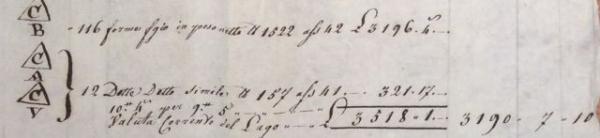 C
B - 116 forme fgio in peso netto ll 1522 a ss 42 £ 3196. 4. —
C
A
C
V 12 Dette Dette simile ll 157 a ss 41 — 321. 17. —
per
Valuta Corrente del Lago — £ 3518. 1. — 3190 - 7 - 10